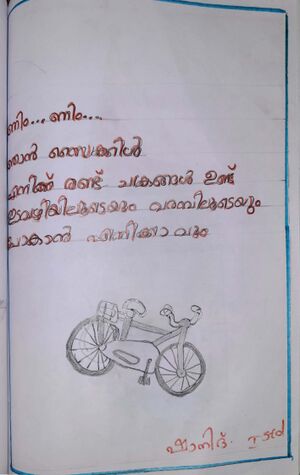 ണിം... ണിം....
ഞാൻ സൈക്കിൾ
എനിക്ക് രണ്ട് ചക്രങ്ങൾ ഉണ്ട്
ഇടവഴിയിലൂടെയും വരമ്പിലൂടെയും
പോകാൻ എനിക്കാവും
ഷാനിദ്.